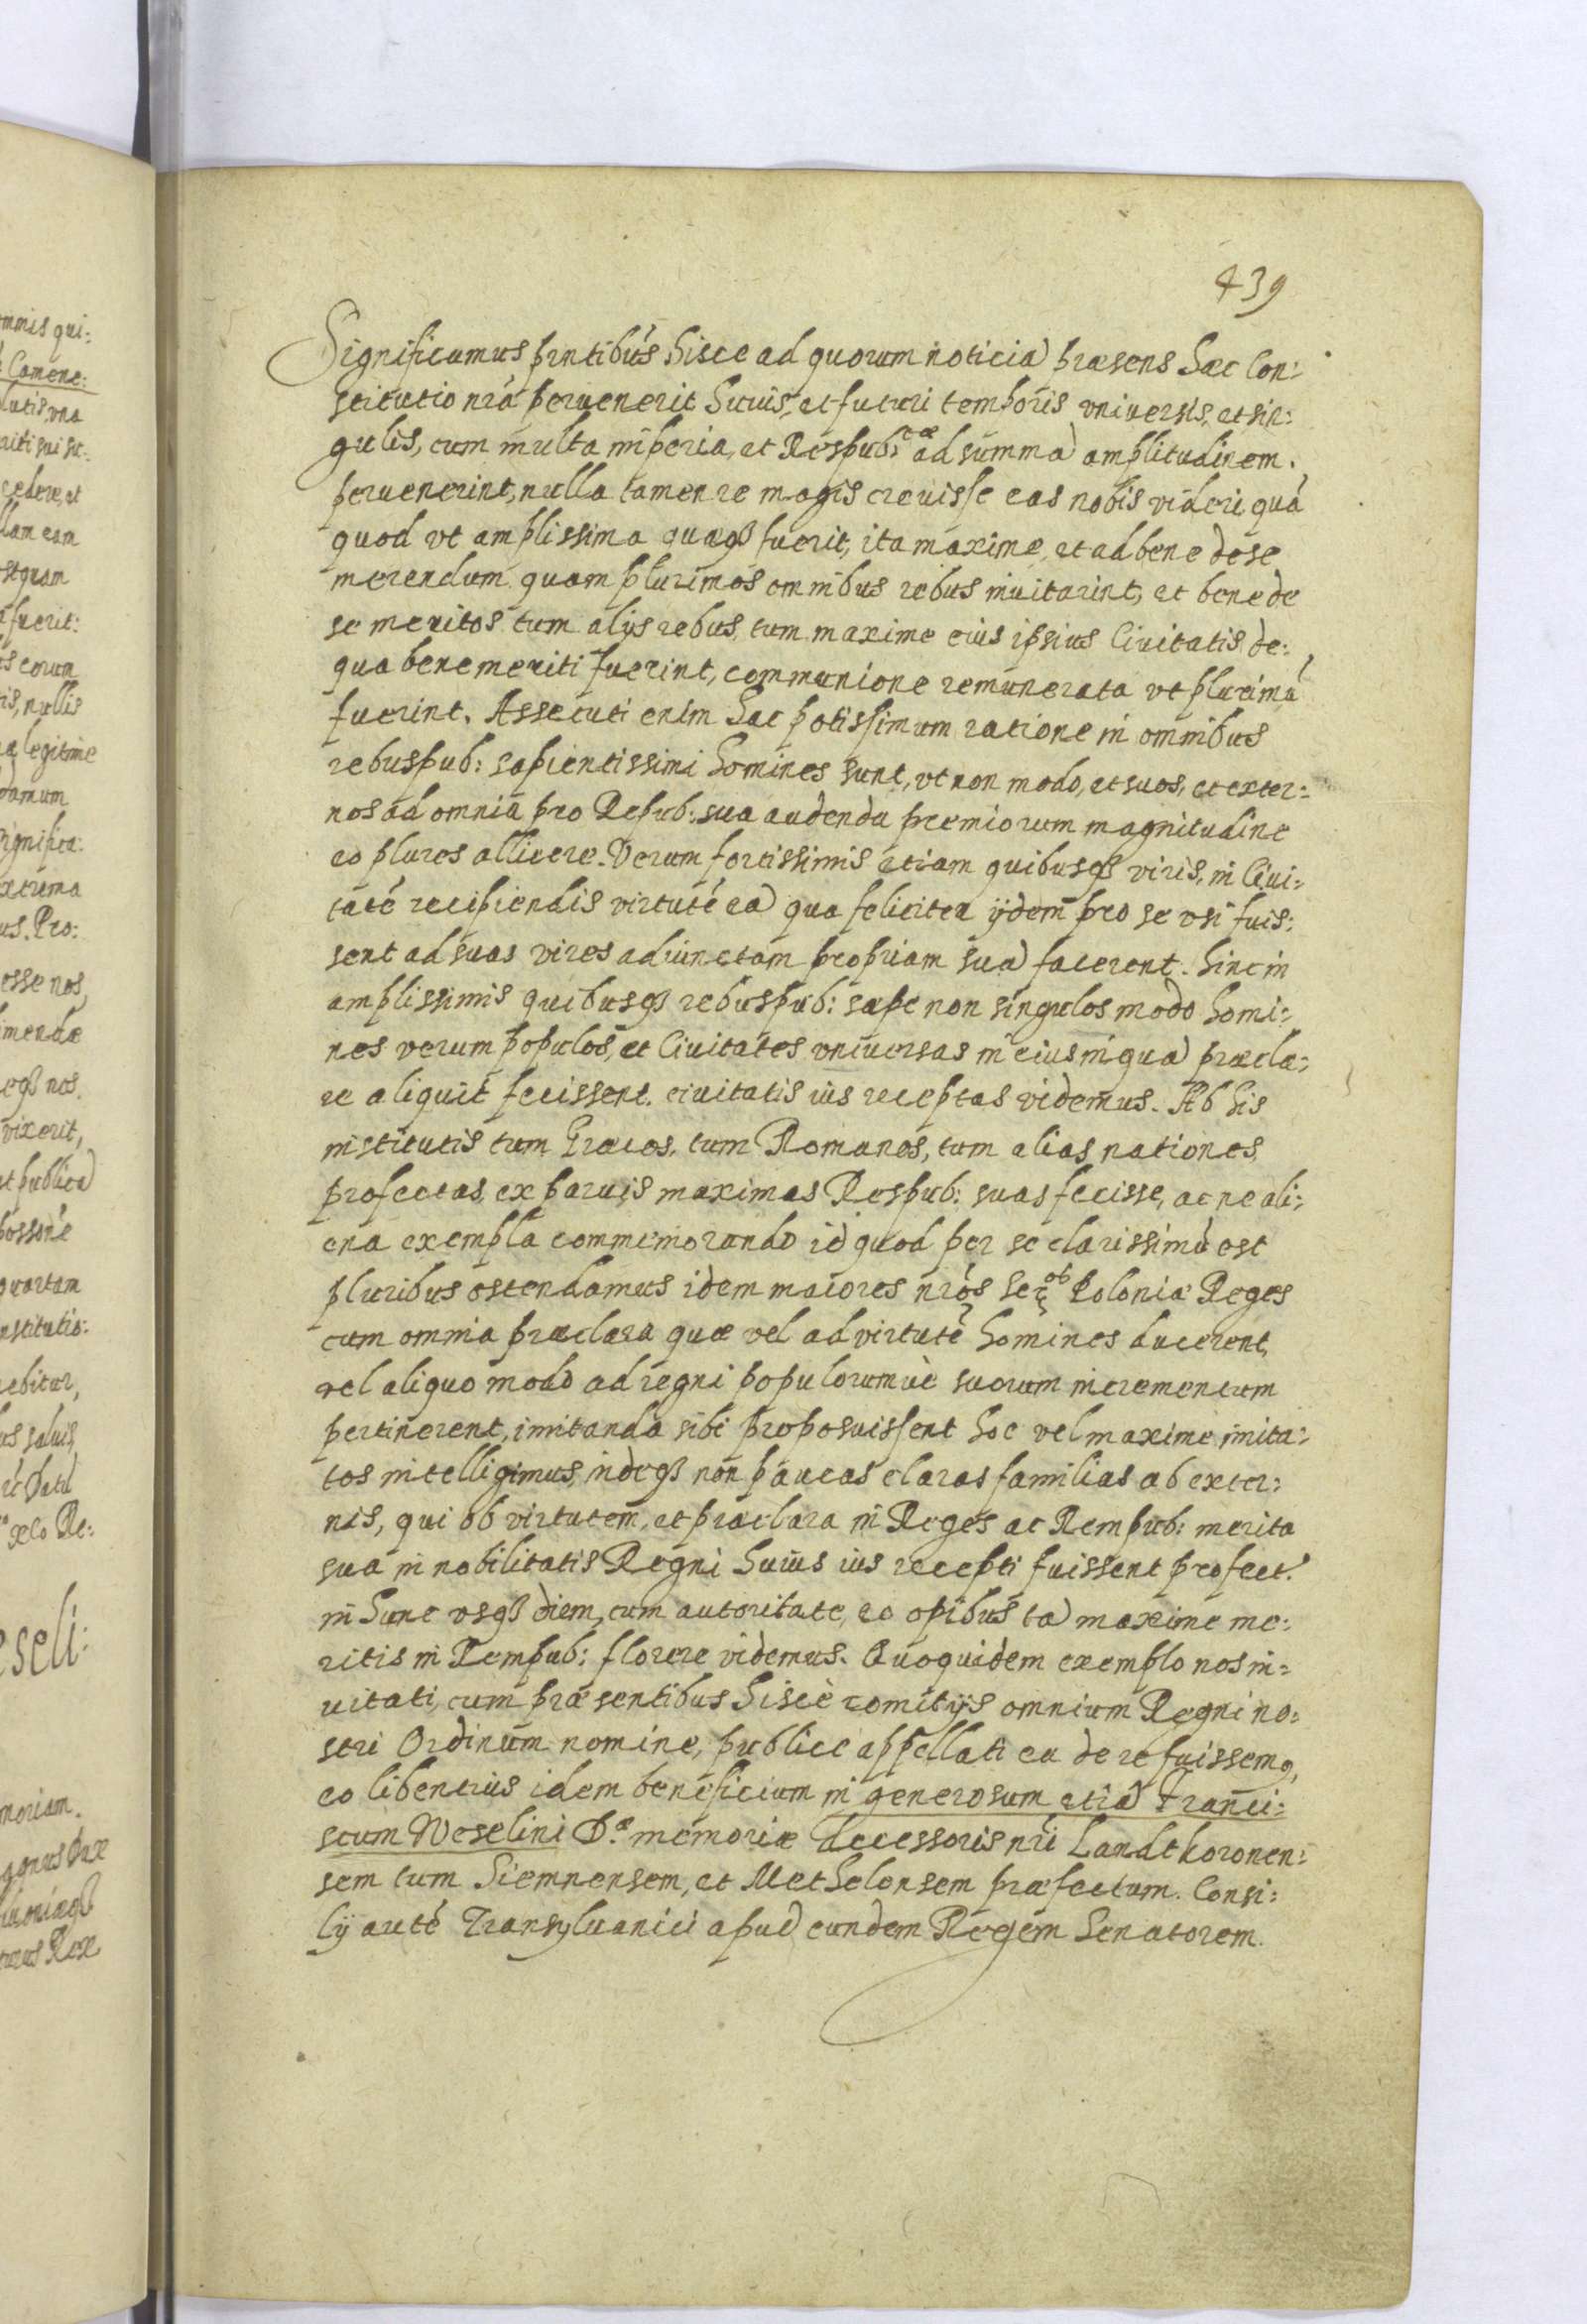 439
Significamus pntibus hisce ad quorum noticiã præsens hæc Con:
stitutio nrã pervenerit huius, et futuri temporis vniversis, et sin:
gulis, cum multa imperia, et Respub: cæ ad summã amplitudinem.
pervenerint, nulla tamen re magis crevisse eas nobis videri quã
quod vt amplissima quæqȝ fuerit, ita maxime, et ad bene de se
merendum quam plurimos omnibus rebus invitarint, et bene de
se meritos tum alijs rebus, tum maxime eius ipsius Civitatis de:
qua bene meriti fuerint, communione remunerata vt plurimũ
fuerint. Assecuti enim hac potissimum ratione in omnibus
rebuspub: sapientissimi homines sunt, vt non modo, et suos, et exter:
nos ad omnia pro Repub: sua audenda premiorum magnitudine
eo plures allicere. Verum fortissimis etiam quibusqȝ viris, in Civi:
tatẽ recipiendis virtutẽ eã qua feliciter ijdem pro se vsi fuis:
sent ad suas vires adiunctam propriam suã facerent. hinc in
amplissimis quibusqȝ rebuspub: sæpe non singulos modo homi:
nes verum populos, et Civitates vniversas in eius in quã præcla:
re aliquit fecissent. civitatis ius receptas videmus. Ab his
institutis tum Græcos, tum Romanos, tum alias nationes
profectas, ex parvis maximas Respub: suas fecisse, ac ne ali:
ena exempla commemorando id quod per se clarissimũ est
pluribus ostendamus idem maiores nrõs Ser: ob Poloniæ Reges
cum omnia præclara quæ vel ad virtutẽ homines ducerent,
vel aliquo modo ad regni populorumvè suorum incrementum
pertinerent, imitanda sibi proposuissent hoc vel maxime imita:
tos intelligimus, indeqȝ non paucas claras familias ab exter:
nis, qui ob virtutem, et præclara in Reges ac Rempub: merita
sua in nobilitatis Regni huius ius recepti fuissent profect:
in hunc vsqȝ diem, cum autoritate, eo opibus tã maxime me:
ritis in Rempub: florere videmus. Quoquidem exemplo nos in:
vitati, cum præsentibus hiscè comitijs omnium Regni no:
stri Ordinum nomine, publice appellati ea de re fuissemꝯ,
eo libentius idem beneficium in generosum etiã Franci:
scum Weselini D. æ memoriæ decessoris nri Landtkoronen:
sem tum Siemnensem, et Methelonsem præfectum. Consi:
lij autẽ Transylvanici apud eundem Regem Senatorem.